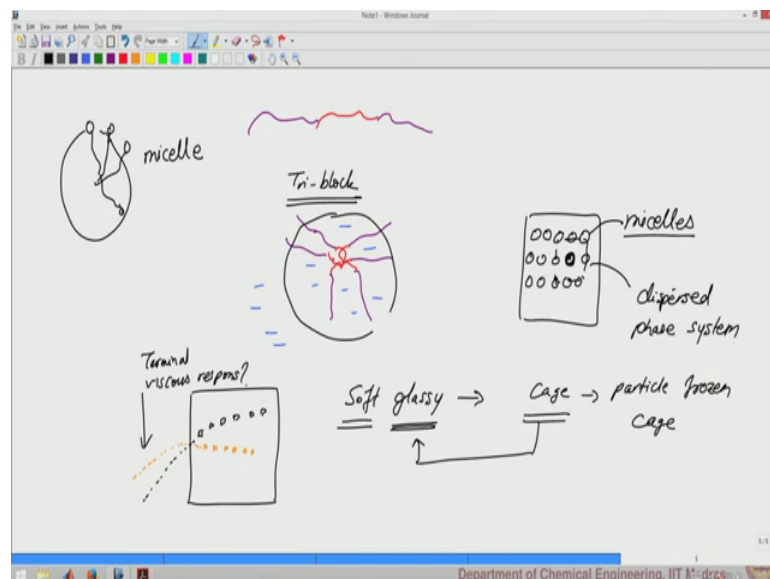 Note1 - Windows Journal
File Edit View Insert Actions Tools Help
Page Width
B I
micelle
Tri-block
micelles
dispersed
phase system
Terminal
viscous respons?
Soft glassy → cage → particle frozen
cage
1/1
1
Department of Chemical Engineering, IIT M